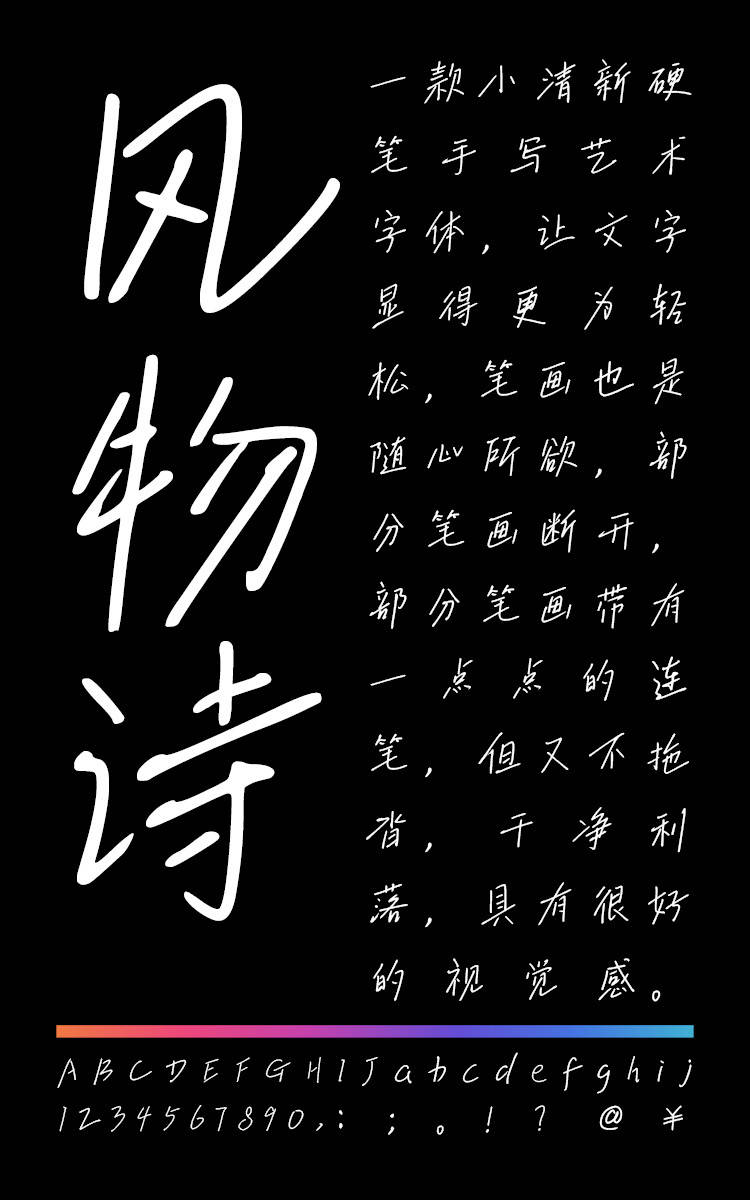 风物诗
一款小清新硬
笔手写艺术
字体，让文字
显得更为轻
松，笔画也是
随心所欲，部
分笔画断开，
部分笔画带有
一点点的连
笔，但又不拖
沓，干净利
落，具有很好
的视觉感。
ABCDEFGHIJabcdefghij
1234567890,:;。!?@¥